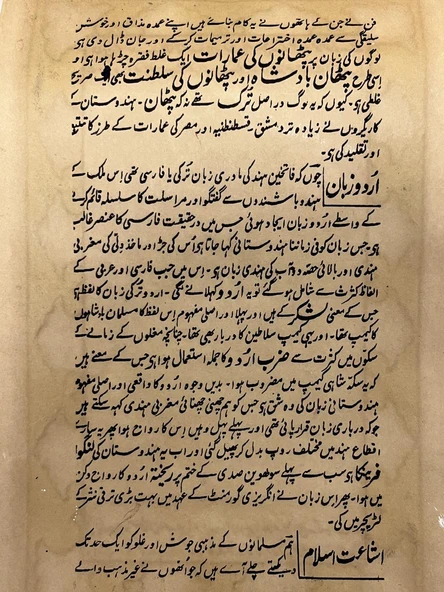 فن نے جن کے ہاتھوں نے یہ کام بنائے ہیں اپنے عمدہ مذاق اور خوش
سلیقگی سے عمدہ عمدہ اختراعات اور ترمیمات کر کے اور جان ڈال دی ہو
لوگوں کی زبان پر پٹھانوں کی عمارات ایک غلط فقرہ چڑھا ہوا ہو اور
اسی طرح پٹھان بادشاہ اور پٹھانوں کی سلطنت بھی ایک صریح
غلطی ہو۔ کیوں کہ یہ لوگ در اصل ترک تھے نہ کہ پٹھان۔ ہندوستان کے
کاریگروں نے زیادہ تر دمشق۔ قسطنطنیہ اور مصر کی عمارات کے طرز کا تتبع
اور تقلید کی ہو۔
اُردو زبان
چوں کہ فاتحین ہند کی مادری زبان ترکی یا فارسی تھی اس ملک کے
ہندو باشندوں سے گفتگو اور مراسلت کا سلسلہ قائم کرنے
کے واسطے اردو زبان ایجاد ہوئی جس میں درحقیقت فارسی کا عنصر غالب
ہو جس زبان کو فی زماننا ہندوستانی کہا جاتا ہو اُس کی جڑ اور ماخذ وہی مغربی
ہندی اور بالائی حصہ دوآب کی ہندی زبان ہو۔ اس میں جب فارسی اور عربی کے
الفاظ کثرت سے شامل ہو گئے تو یہ اردو کہلانے لگی۔ اردو ترکی زبان کا لفظ ہو
جس کے معنی لشکر کے ہیں اور پہلا اور اصلی مفہوم اس لفظ کا مسلمان بادشاہوں
کا کیمپ تھا۔ اور یہی کیمپ سلاطین کا دربار بھی تھا۔ چنانچہ مغلوں کے زمانے کے
سکوں میں کثرت سے ضرب اردو کا جملہ استعمال ہوا ہو جس کے معنے ہیں
کہ یہ سکہ شاہی کیمپ میں مضروب ہوا۔ بدیں وجوہ اردو کا واقعی اور اصلی مفہوم
ہندوستانی زبان کی وہ شق ہو جس کو ہم مغربی ہندی کہہ سکتے ہیں
جو کہ درباری زبان قرار پائی تھی اور پہلے پہل وہیں اس کا رواج ہوا پھر یہ
اقطاع ہند میں مختلف روپ بدل کر پھیل گئی اور اب یہ ہندوستان کی لنگوا
فرینکا ہو سب سے پہلے سولھویں صدی کے ختم پر ریختہ اردو کا رواج دکن
میں ہوا۔ پھر اس زبان نے انگریزی گورنمنٹ کے عہد میں بہت بڑی ترقی نثر کے
لٹریچر میں کی۔
اشاعت اسلام
ہم مسلمانوں کے مذہبی جوش اور غلو کو ایک حد تک
دیکھتے چلے آئے ہیں کہ جو اُنھوں نے غیر مذہب والے